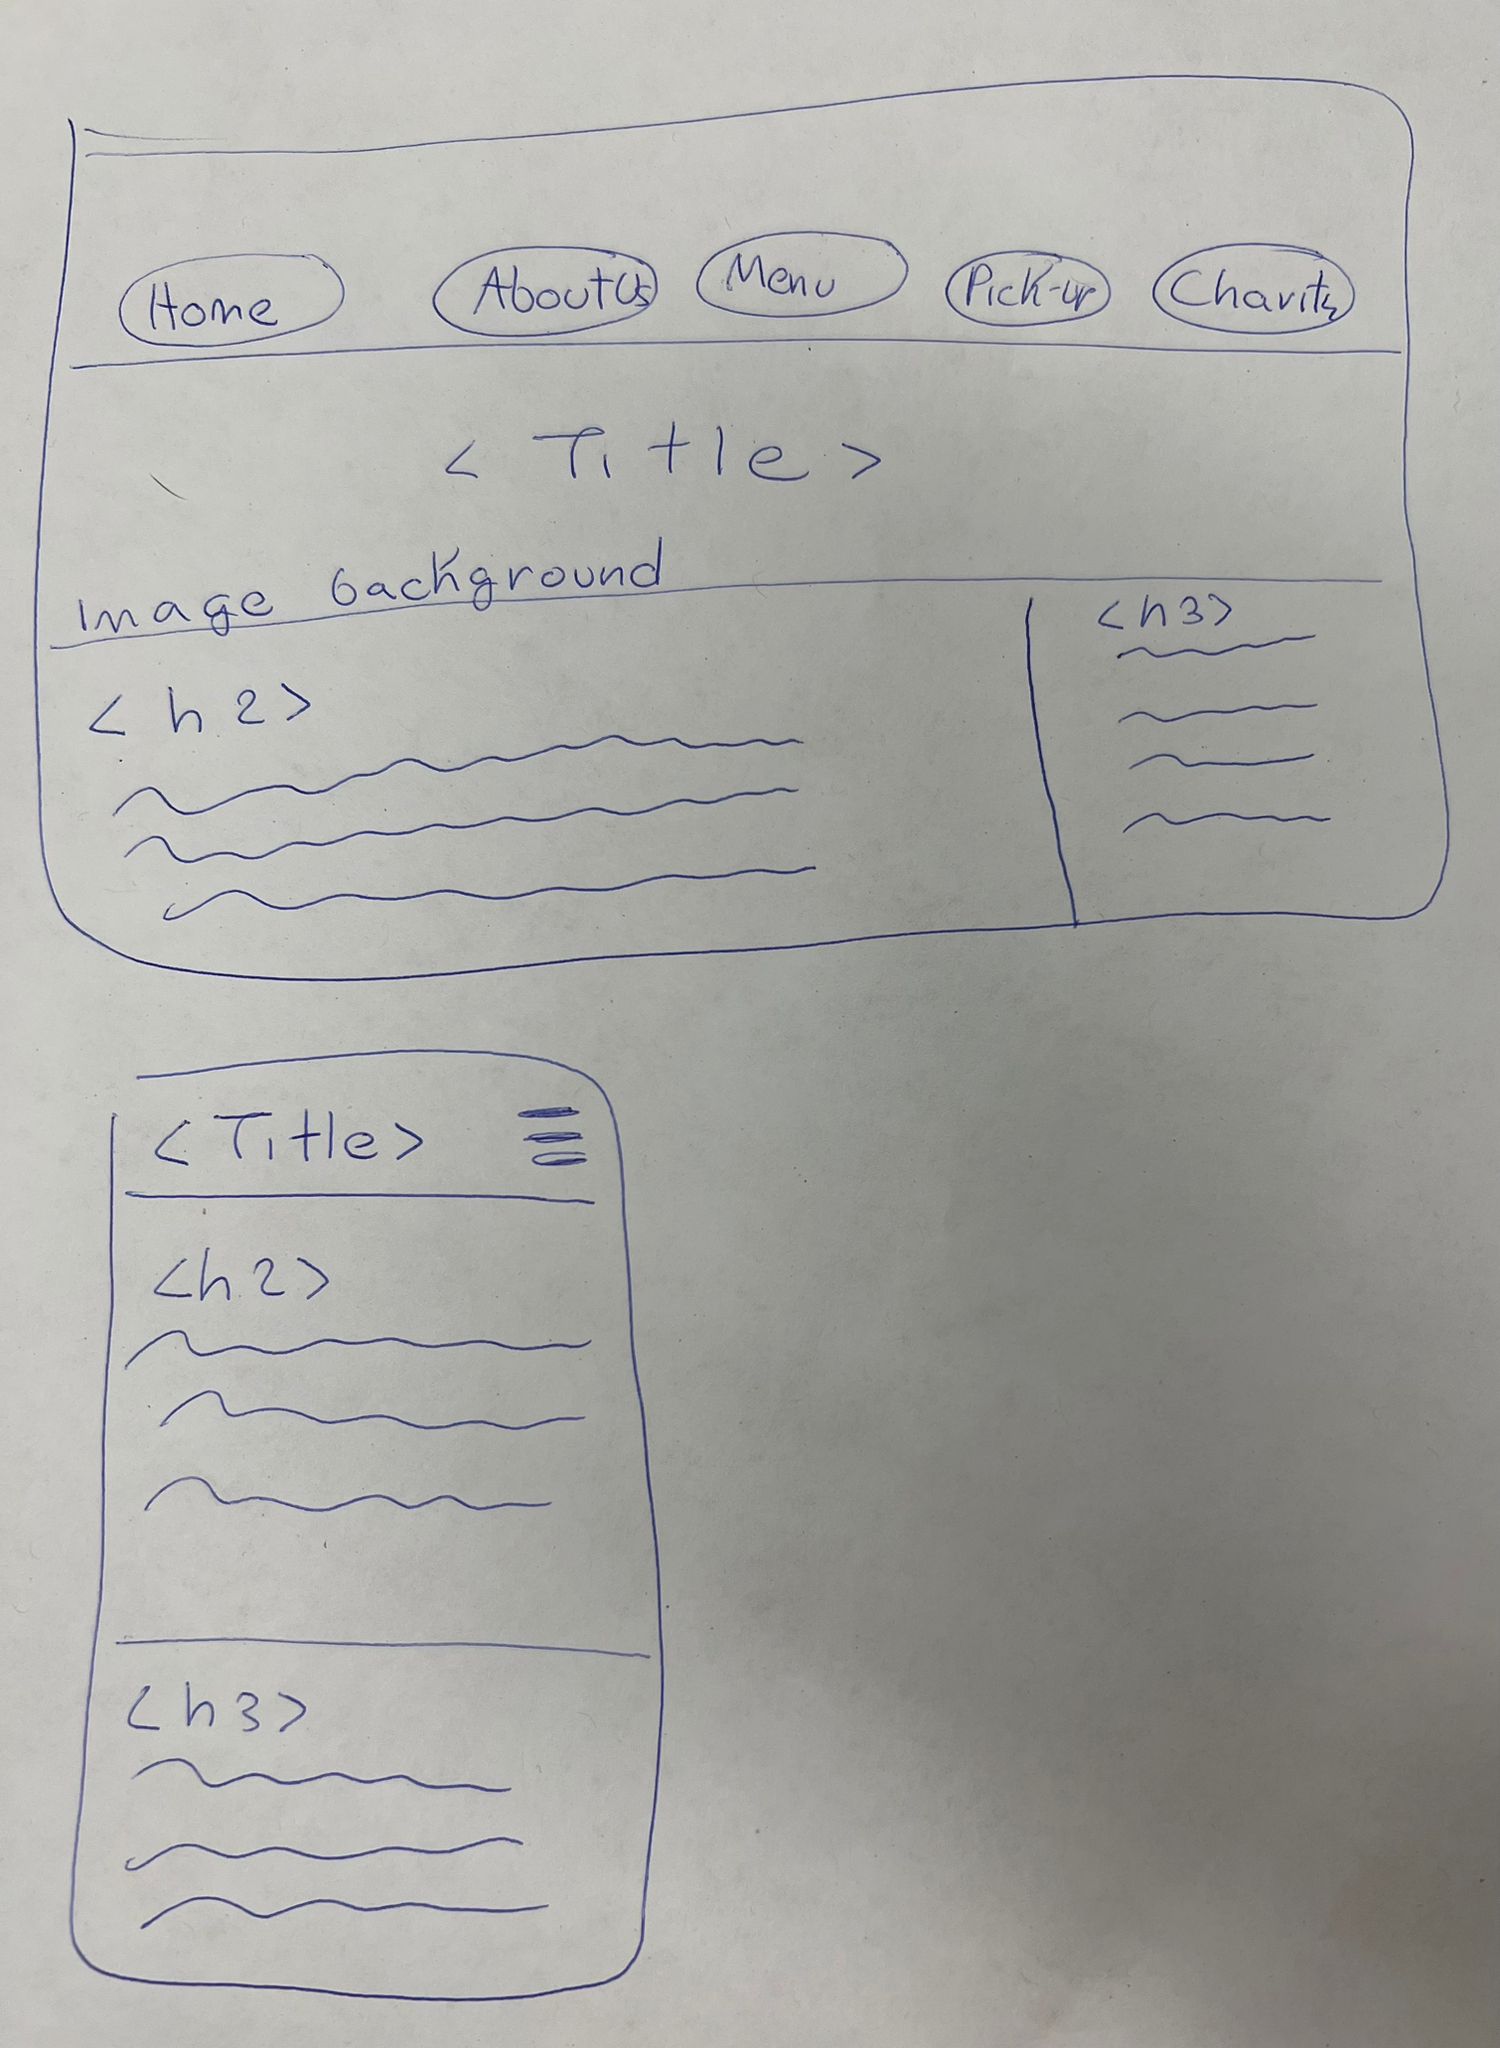 Home About Us Menu Pick-up Charity
< Title >
Image background
<h3>
< h2>
<Title>
<h2>
<h3>